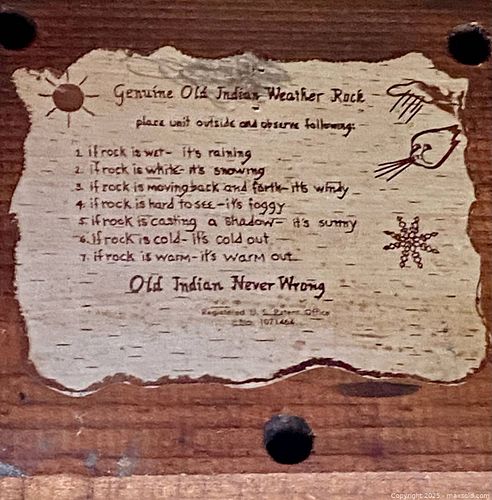 Genuine Old Indian Weather Rock
place unit outside and observe following:
1. if rock is wet- it's raining
2. if rock is white- it's snowing
3. if rock is moving back and forth- it's windy
4. if rock is hard to see- it's foggy
5. if rock is casting a shadow- it's sunny
6. if rock is cold- it's cold out
7. if rock is warm- it's warm out
Old Indian Never Wrong
Registered U. S. Patent Office
No. 1071464
Copyright 2025 - maxsold.com